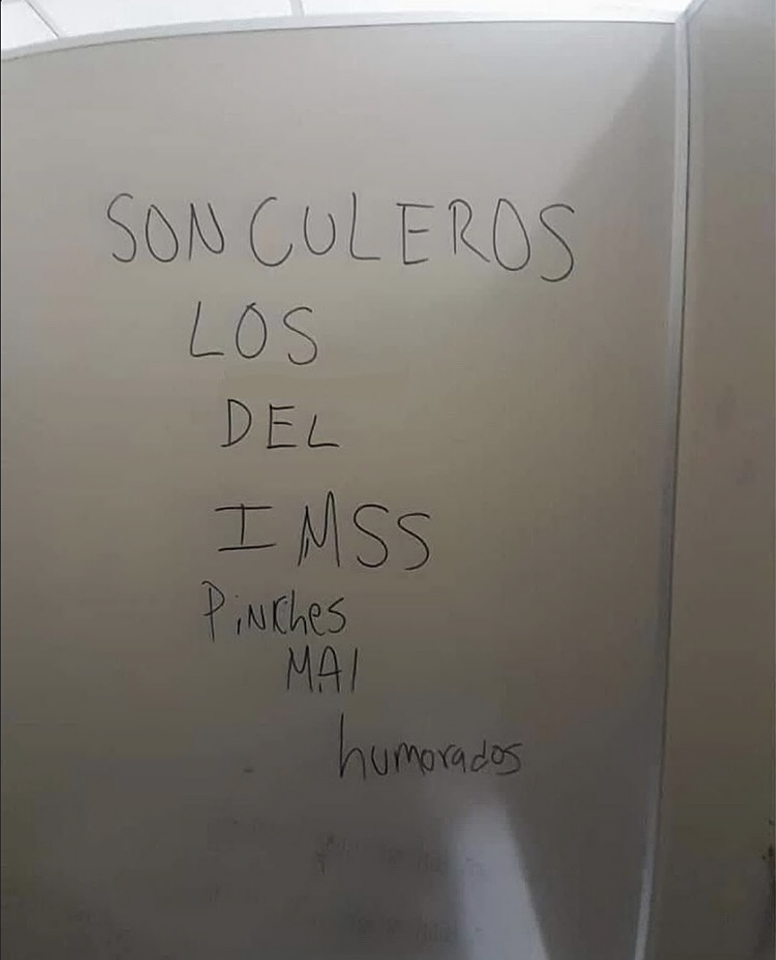 SON CULEROS
LOS
DEL
IMSS
PiNChes
MAl
humorados